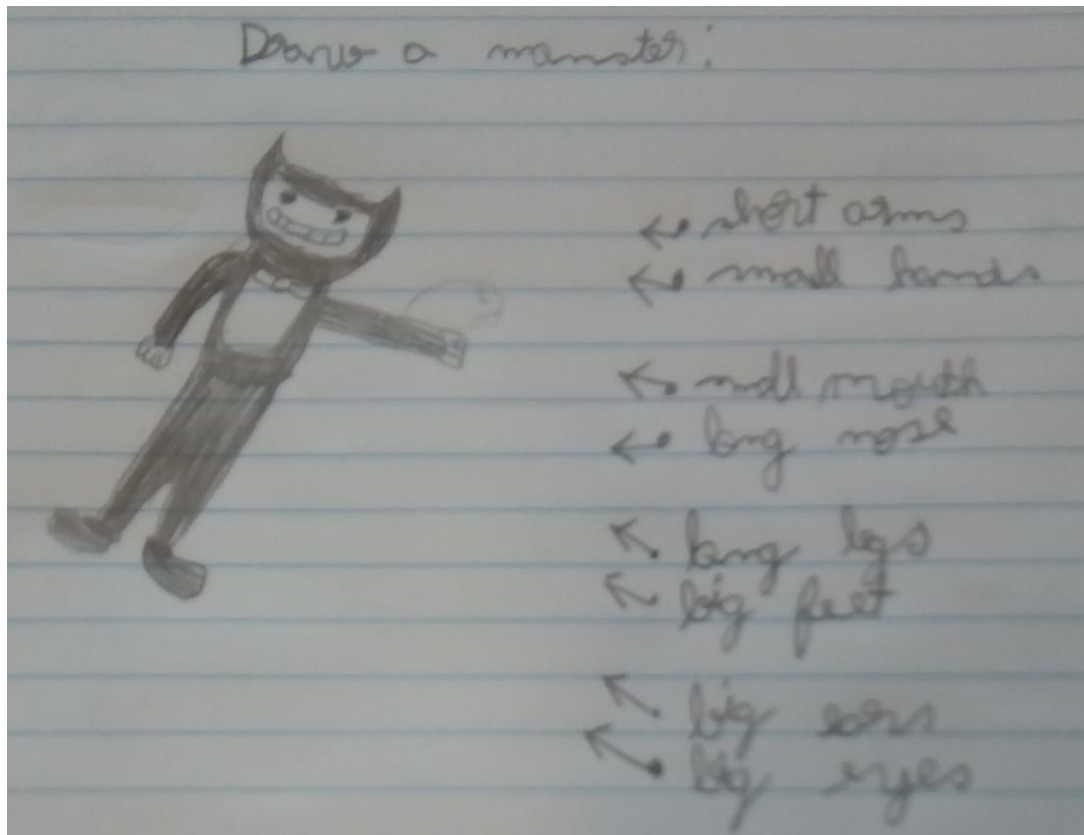 Draw a monster:
short arms
small hands
small mouth
long nose
long legs
big feet
big ears
big eyes